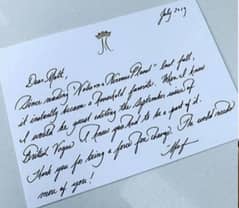 July 2019
Dear Matt,
Since reading "Notes on a Nervous Planet" last fall,
it instantly became a household favorite. When I knew
I would be guest editing the September issue of
British Vogue I knew you had to be a part of it.
Thank you for being a force for change. The world needs
more of you!